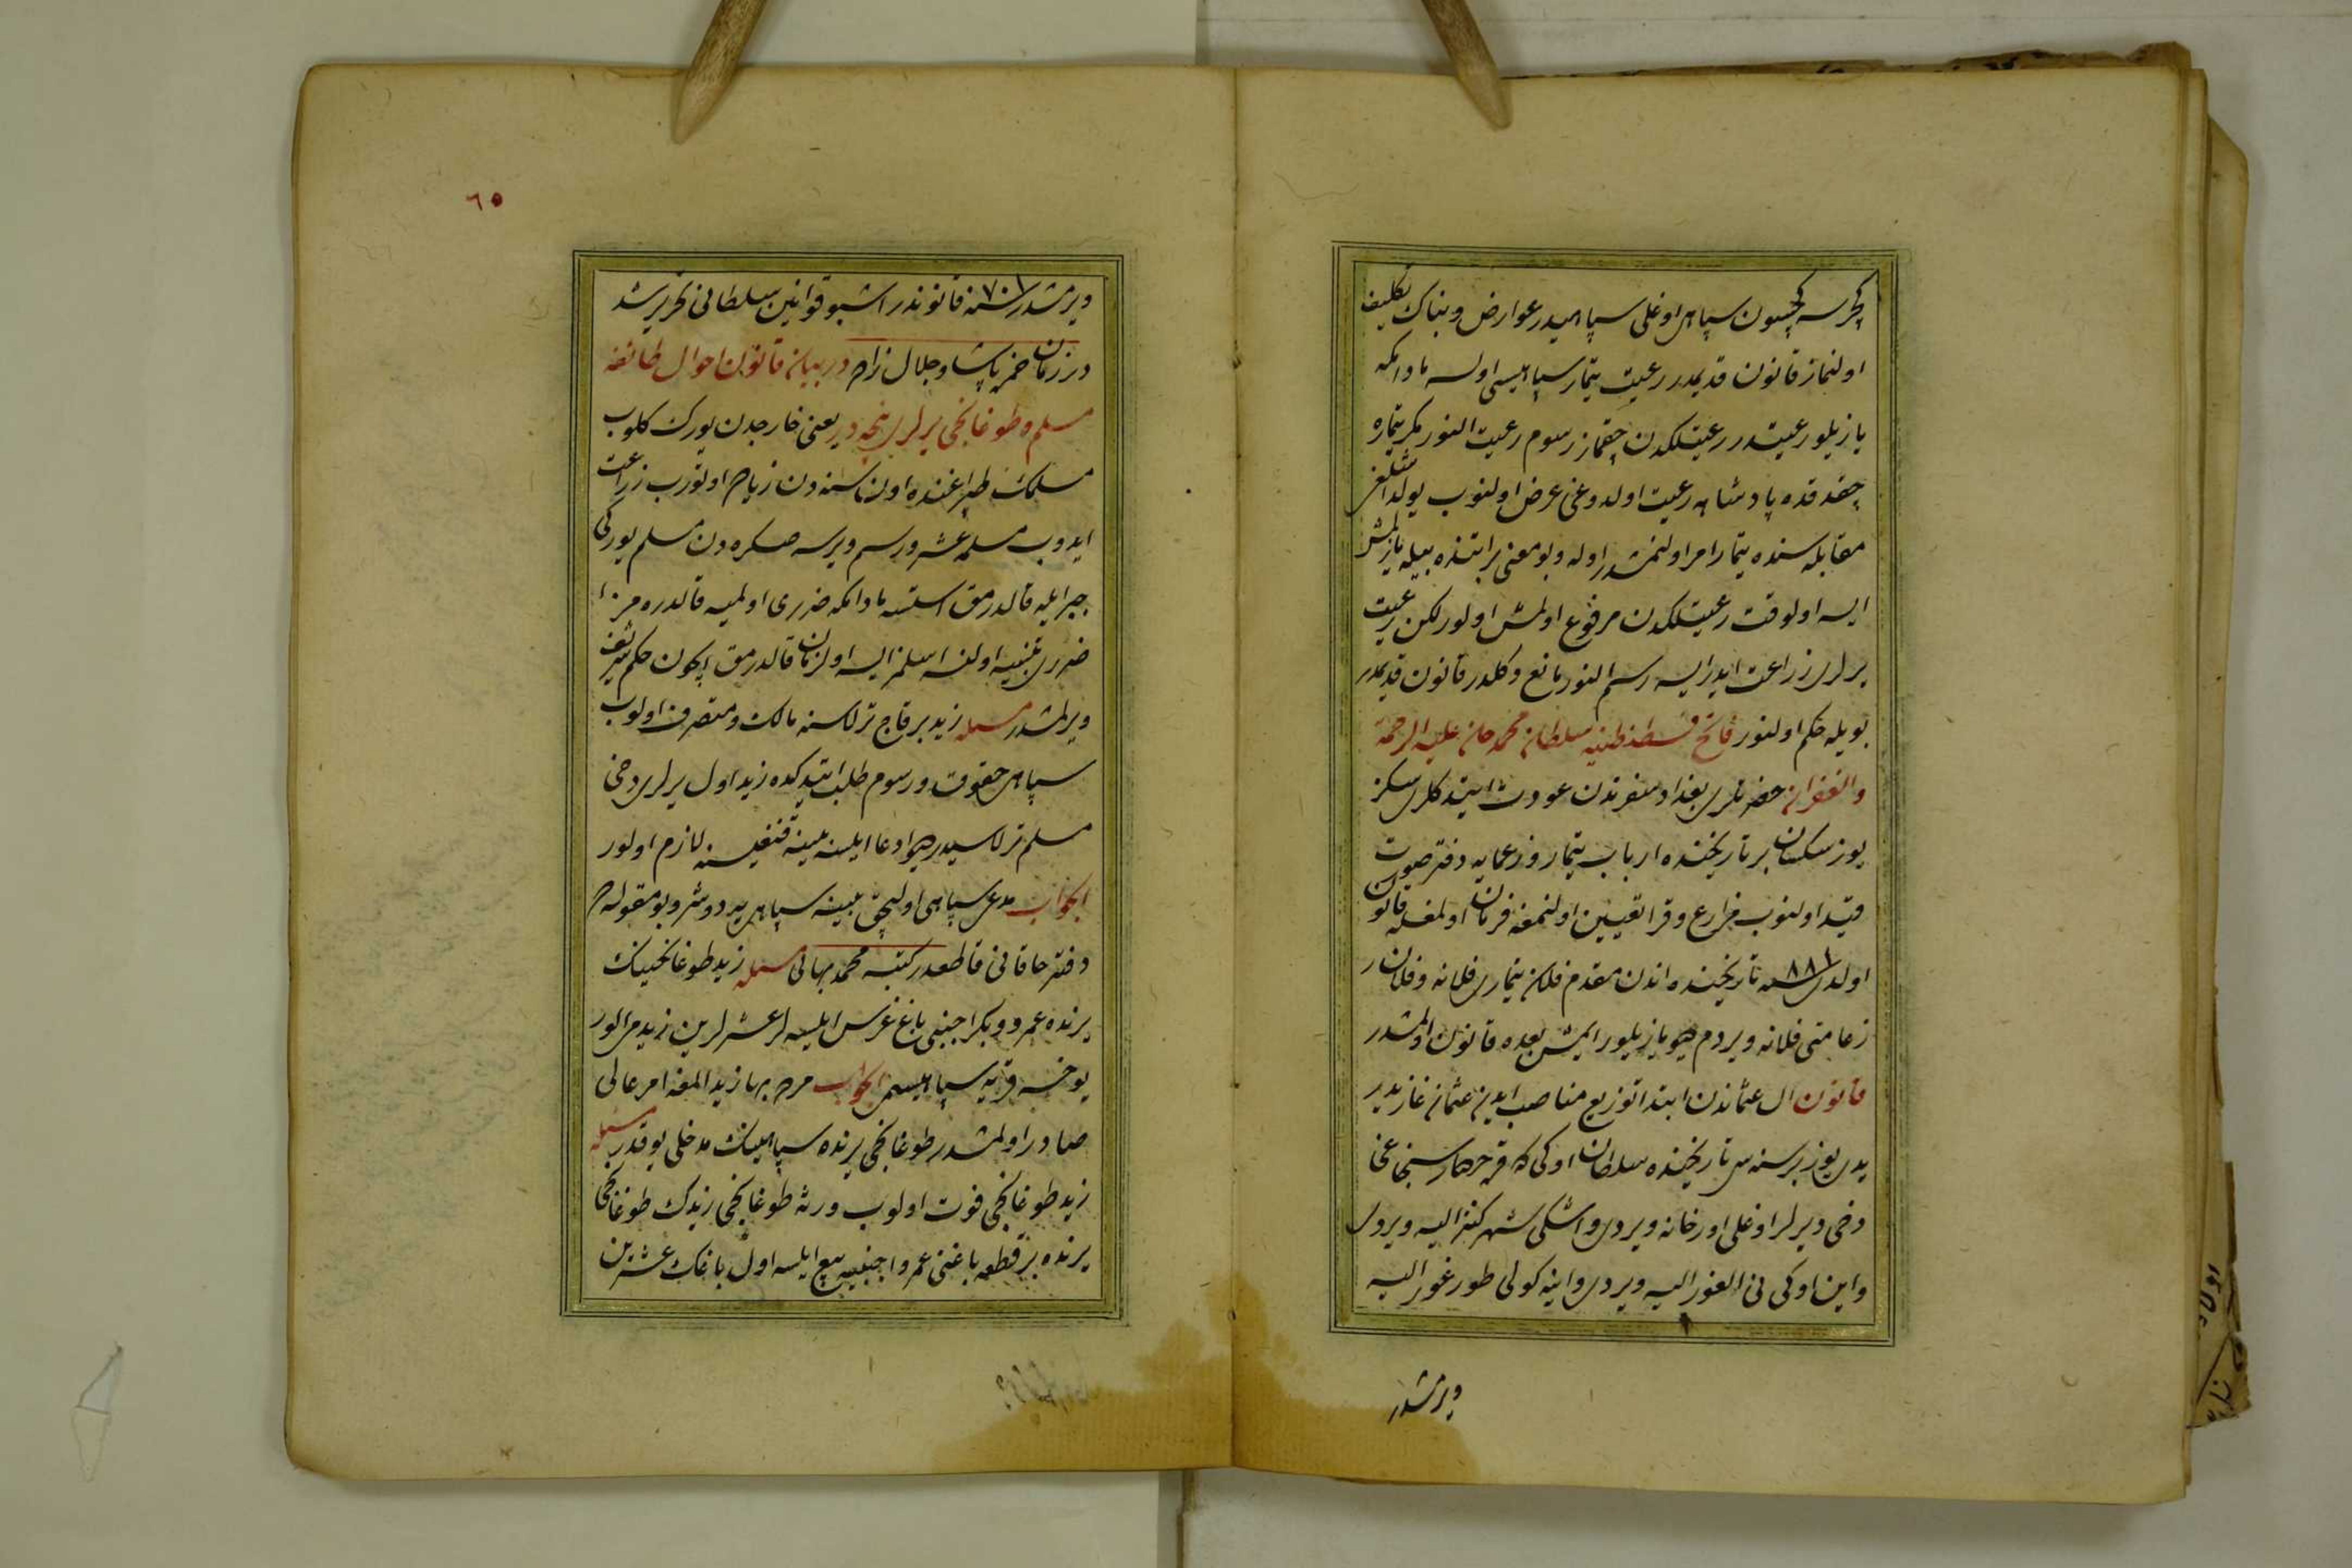 كچرسه كچسون سپاهی اوغلی سپاهیدر عوارض و بناك تكلیف
اولنماز قانون قدیمدر رعیت تیمار سپاهیسی اولسه مادامكه
یازیلو رعیتدر رعیتلكدن چقماز رسوم رعیت النور مكر تیماره
چقدقده پادشاهه رعیت اولدوغی عرض اولنوب یولداشلغی
مقابله سنده تیمار امر اولنمشدر اوله و بو معنی براتنده بیله یازلمش
ایسه اولوقت رعیتلكدن مرفوع اولمش اولور لكن رعیت
یرلری زراعت ایدر ایسه رسم النور مانع دكلدر قانون قدیمدر
بویله حكم اولنور فاتح قسطنطنیه سلطان محمد خان علیه الرحمة
والغفران حضرتلری بغداد سفرندن عودت ایتدكلری سكز
یوز سكسان بر تاریخنده ارباب تیمار و زعمایه دفتر صورت
قید اولنوب مزارع و قرا تعیین اولنمغه فرمان اولمغله قانون
اولدی سنه ٨٨١ تاریخنده اندن مقدم فلان تیماری فلانه و فلان
زعامتی فلانه ویردم دیو یازیلور ایمش بعده قانون اولمشدر
قانون ال عثماندن ابتدا توزیع مناصب ایدن عثمان غازیدر
یدی یوز بر سنه سی تاریخنده سلطان اوكی كه قره حصار سنجاغی
دخی دیرلر اوغلی اورخانه ویردی و اسكی شهر كندز الپه ویردی
و این اوكی نی الغور الپه ویردی و اینه كولی طورغور الپه
ویرمشدر
٦٥
ویرمشدر سنه ٧٠١ قانوندر اشبو قوانین سلطانی تحریر شد
در زمان حمزه پاشا و جلال زاده در بیان قانون احوال طائفه
مسلم و طوغانجی یرلری نیجه در یعنی خارجدن یورك كلوب
مسلمك طپراغنده اون سنه دن زیاده اوتورب زراعت
ایدوب مسلمه عشر و رسم ویرسه صكره دن مسلم یوركی
جبرایله قالدرمق استسه مادامكه ضرری اولمیه قالدره مز
ضرری بینیه اولنسه اسلمز ایسه اول زمان قالدرمق ایچون حكم شریف
ویرلمشدر مسئله زید بر قاج ترلاسنه مالك و متصرف اولوب
سپاهی حقوق و رسوم طلب ایتدكده زید اول یرلری دخی
مسلم ترلاسیدر دیو ادعا ایلسه بینه قنغیسنه لازم اولور
الجواب مدعی سپاهی اولیجق بینه سپاهی یه دوشر و بو مقوله ده
دفتر خاقانی قاطعدر كتبه محمد بهائی مسئله زید طوغانجینك
یرنده عمرو و بكر اجنبی باغ غرس ایلیسه لر عشرلرین زیدمی الور
یوخسه قریه سپاهیسی می الجواب زید المغه امر عالی
صادر اولمشدر طوغانجی یرنده سپاهینك مدخلی یوقدر مسئله
زید طوغانجی فوت اولوب ورثه طوغانجی زیدك طوغانجی
یرنده بر قطعه باغنی عمرو اجنبیه بیع ایلسه اول باغك عشرین